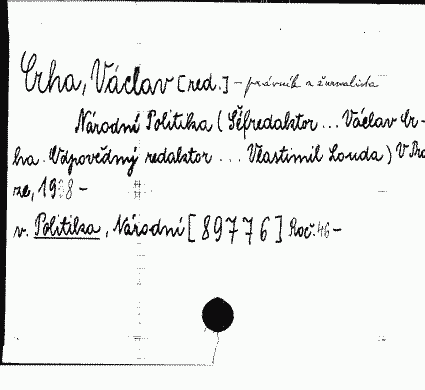 Crha, Václav [red.] - právník a žurnalista
Národní Politika (Šéfredaktor ... Václav Cr-
ha. Odpovědný redaktor ... Vlastimil Louda) V Pra
ze, 19 8 -
v. Politika, Národní [89776] Roč. 46 -